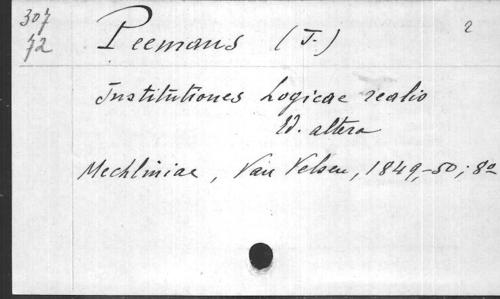 307
72
Peemans (J.)
2
Institutiones Logicae realio
Ed. altera
Mechliniae, Van Velsen, 1849,-50; 8º